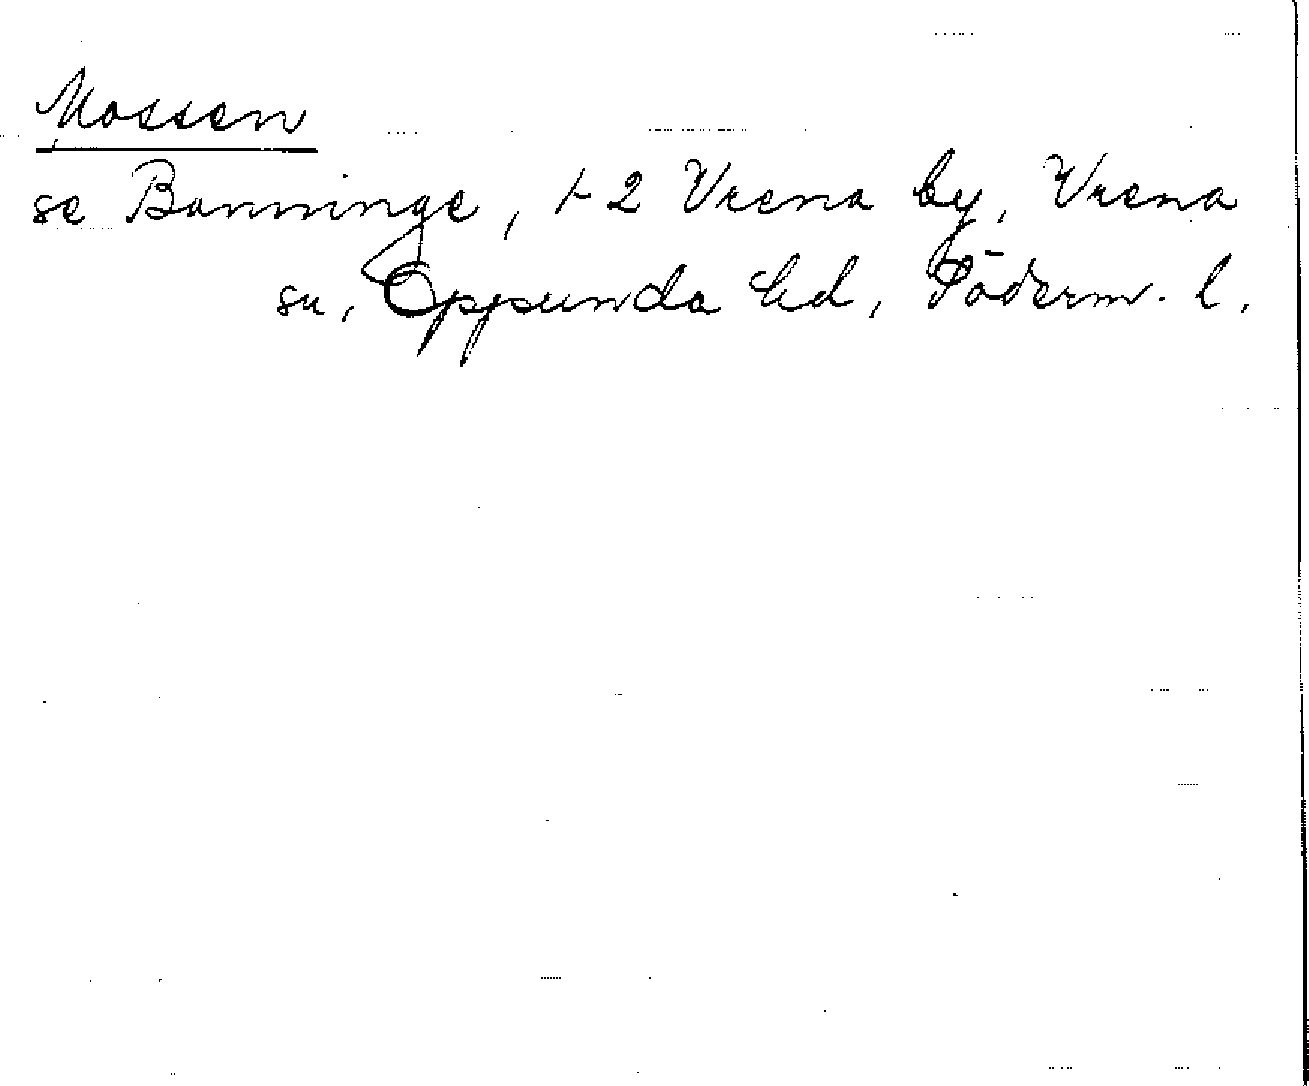 Mossen
se Banninge, 1-2 Vrena by, Vrena
sn, Oppunda hd, Söderm. l.